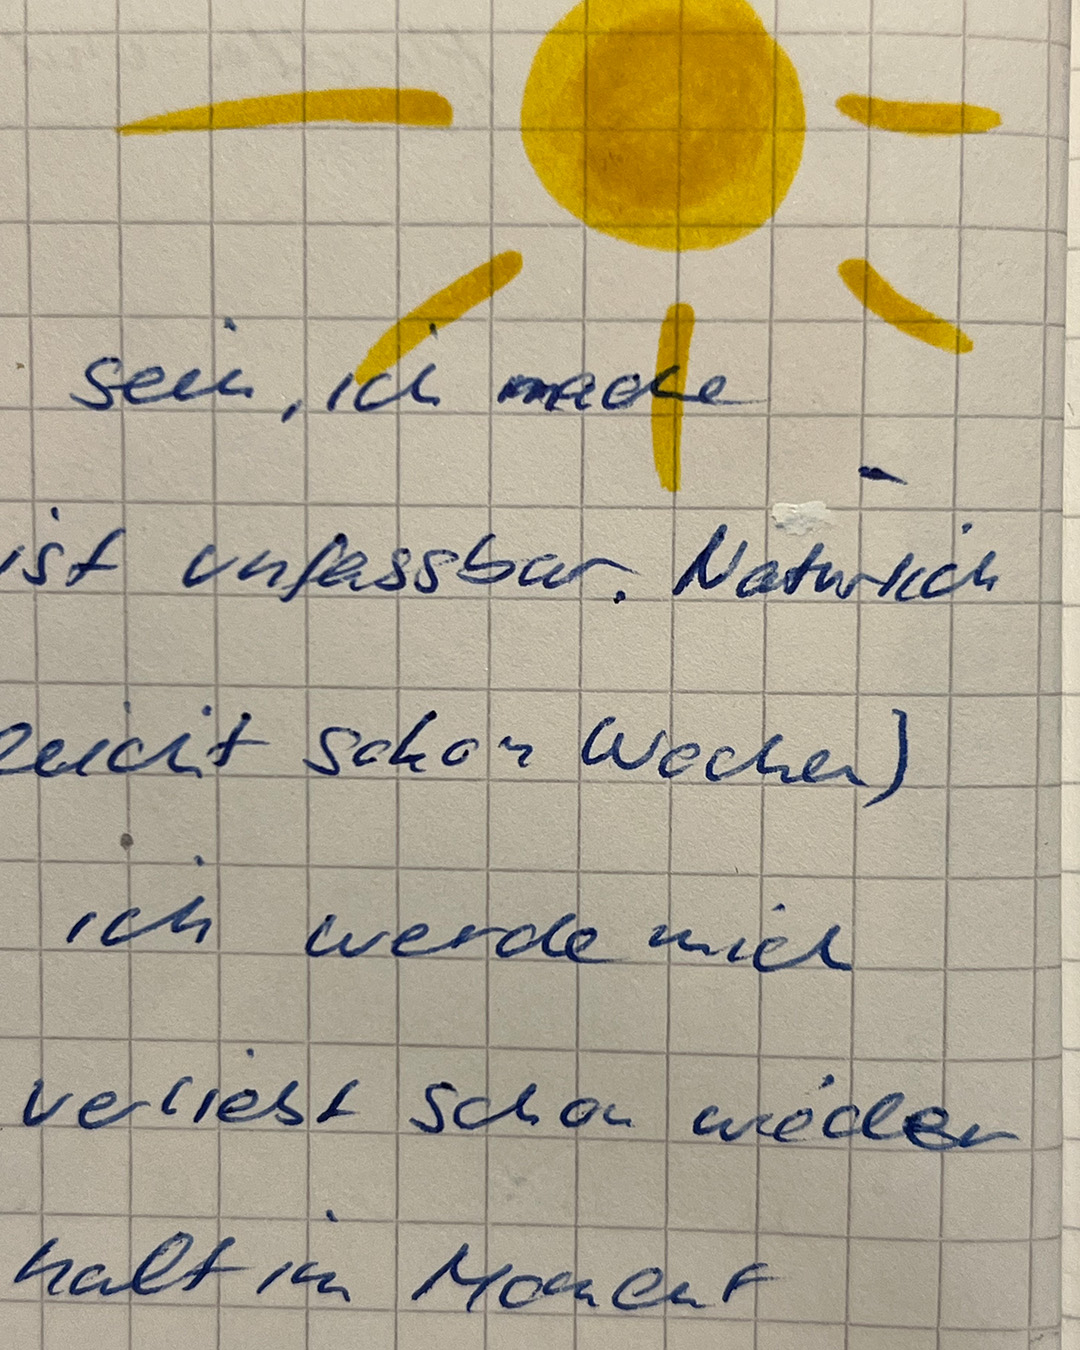 sein, ich mache
ist unfassbar. Natürlich
leicht schon Wochen)
ich werde mich
verliebt schon wieder
halt im Moment